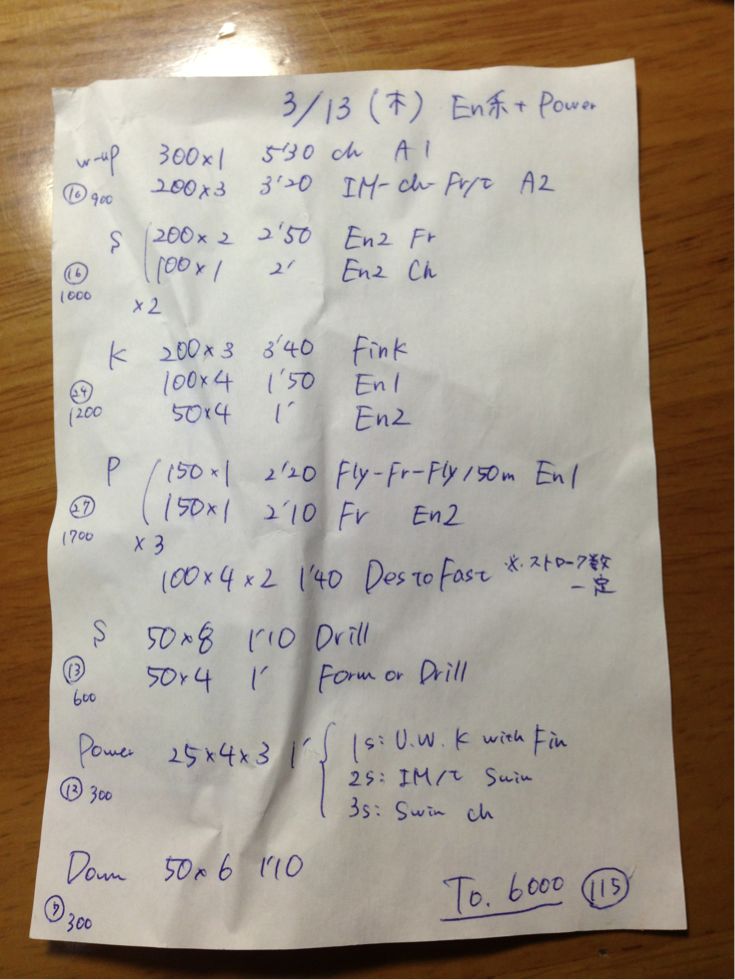 3/13 (木) En系+Power
w-up 300×1 5'30 ch A1
⑯ 900 200×3 3'20 IM-ch-Fr/t A2
S 200×2 2'50 En2 Fr
⑯ 100×1 2' En2 Ch
1000 ×2
K 200×3 3'40 Fink
㉔ 100×4 1'50 En1
1200 50×4 1' En2
P 150×1 2'20 Fly-Fr-Fly/50m En1
㉗ 150×1 2'10 Fr En2
1700 ×3
100×4×2 1'40 Des to Fast ※.ストローク数
一定
S 50×8 1'10 Drill
⑬ 50×4 1' Form or Drill
600
Power 25×4×3 1' 1s: U.W.K with Fin
2s: IM/t Swim
300 3s: Swim ch
Down 50×6 1'10
300
To. 6000 (115)